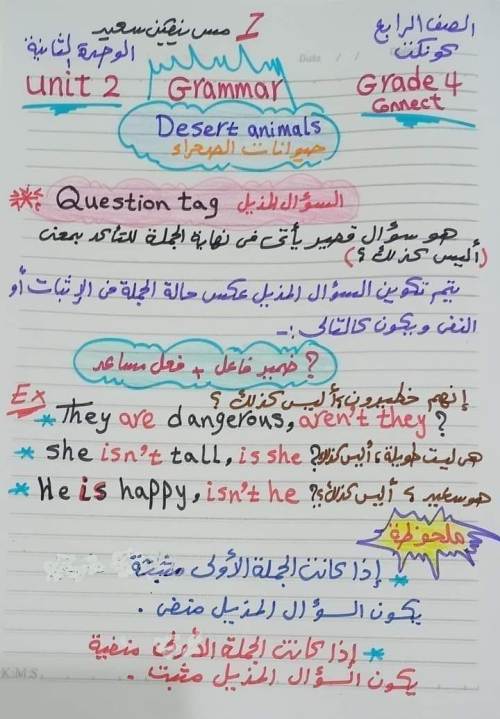 الصف الرابع
I مس نيفين سعيد
كونكت
الوحدة الثانية
Date / /
Unit 2
Grammar
Grade 4
Connect
Desert animals
حيوانات الصحراء
Question tag السؤال المذيل
هو سؤال قصير يأتى فى نهاية الجملة للتأكد بمعنى
(أليس كذلك؟)
يتم تكوين السؤال المذيل عكس حالة الجملة فى الإثبات أو
النفى ويكون كالتالى :-
? ضمير فاعل + فعل مساعد
Ex إنهم خطيرون، أليس كذلك؟
* They are dangerous, aren't they?
* she isn't tall, is she? هى ليست طويلة، أليس كذلك
* He is happy, isn't he? هو سعيد، أليس كذلك؟
ملحوظة
* إذا كانت الجملة الأولى مثبتة
يكون السؤال المذيل منفى.
* إذا كانت الجملة الأولى منفية
يكون السؤال المذيل مثبت.
K.M.S.